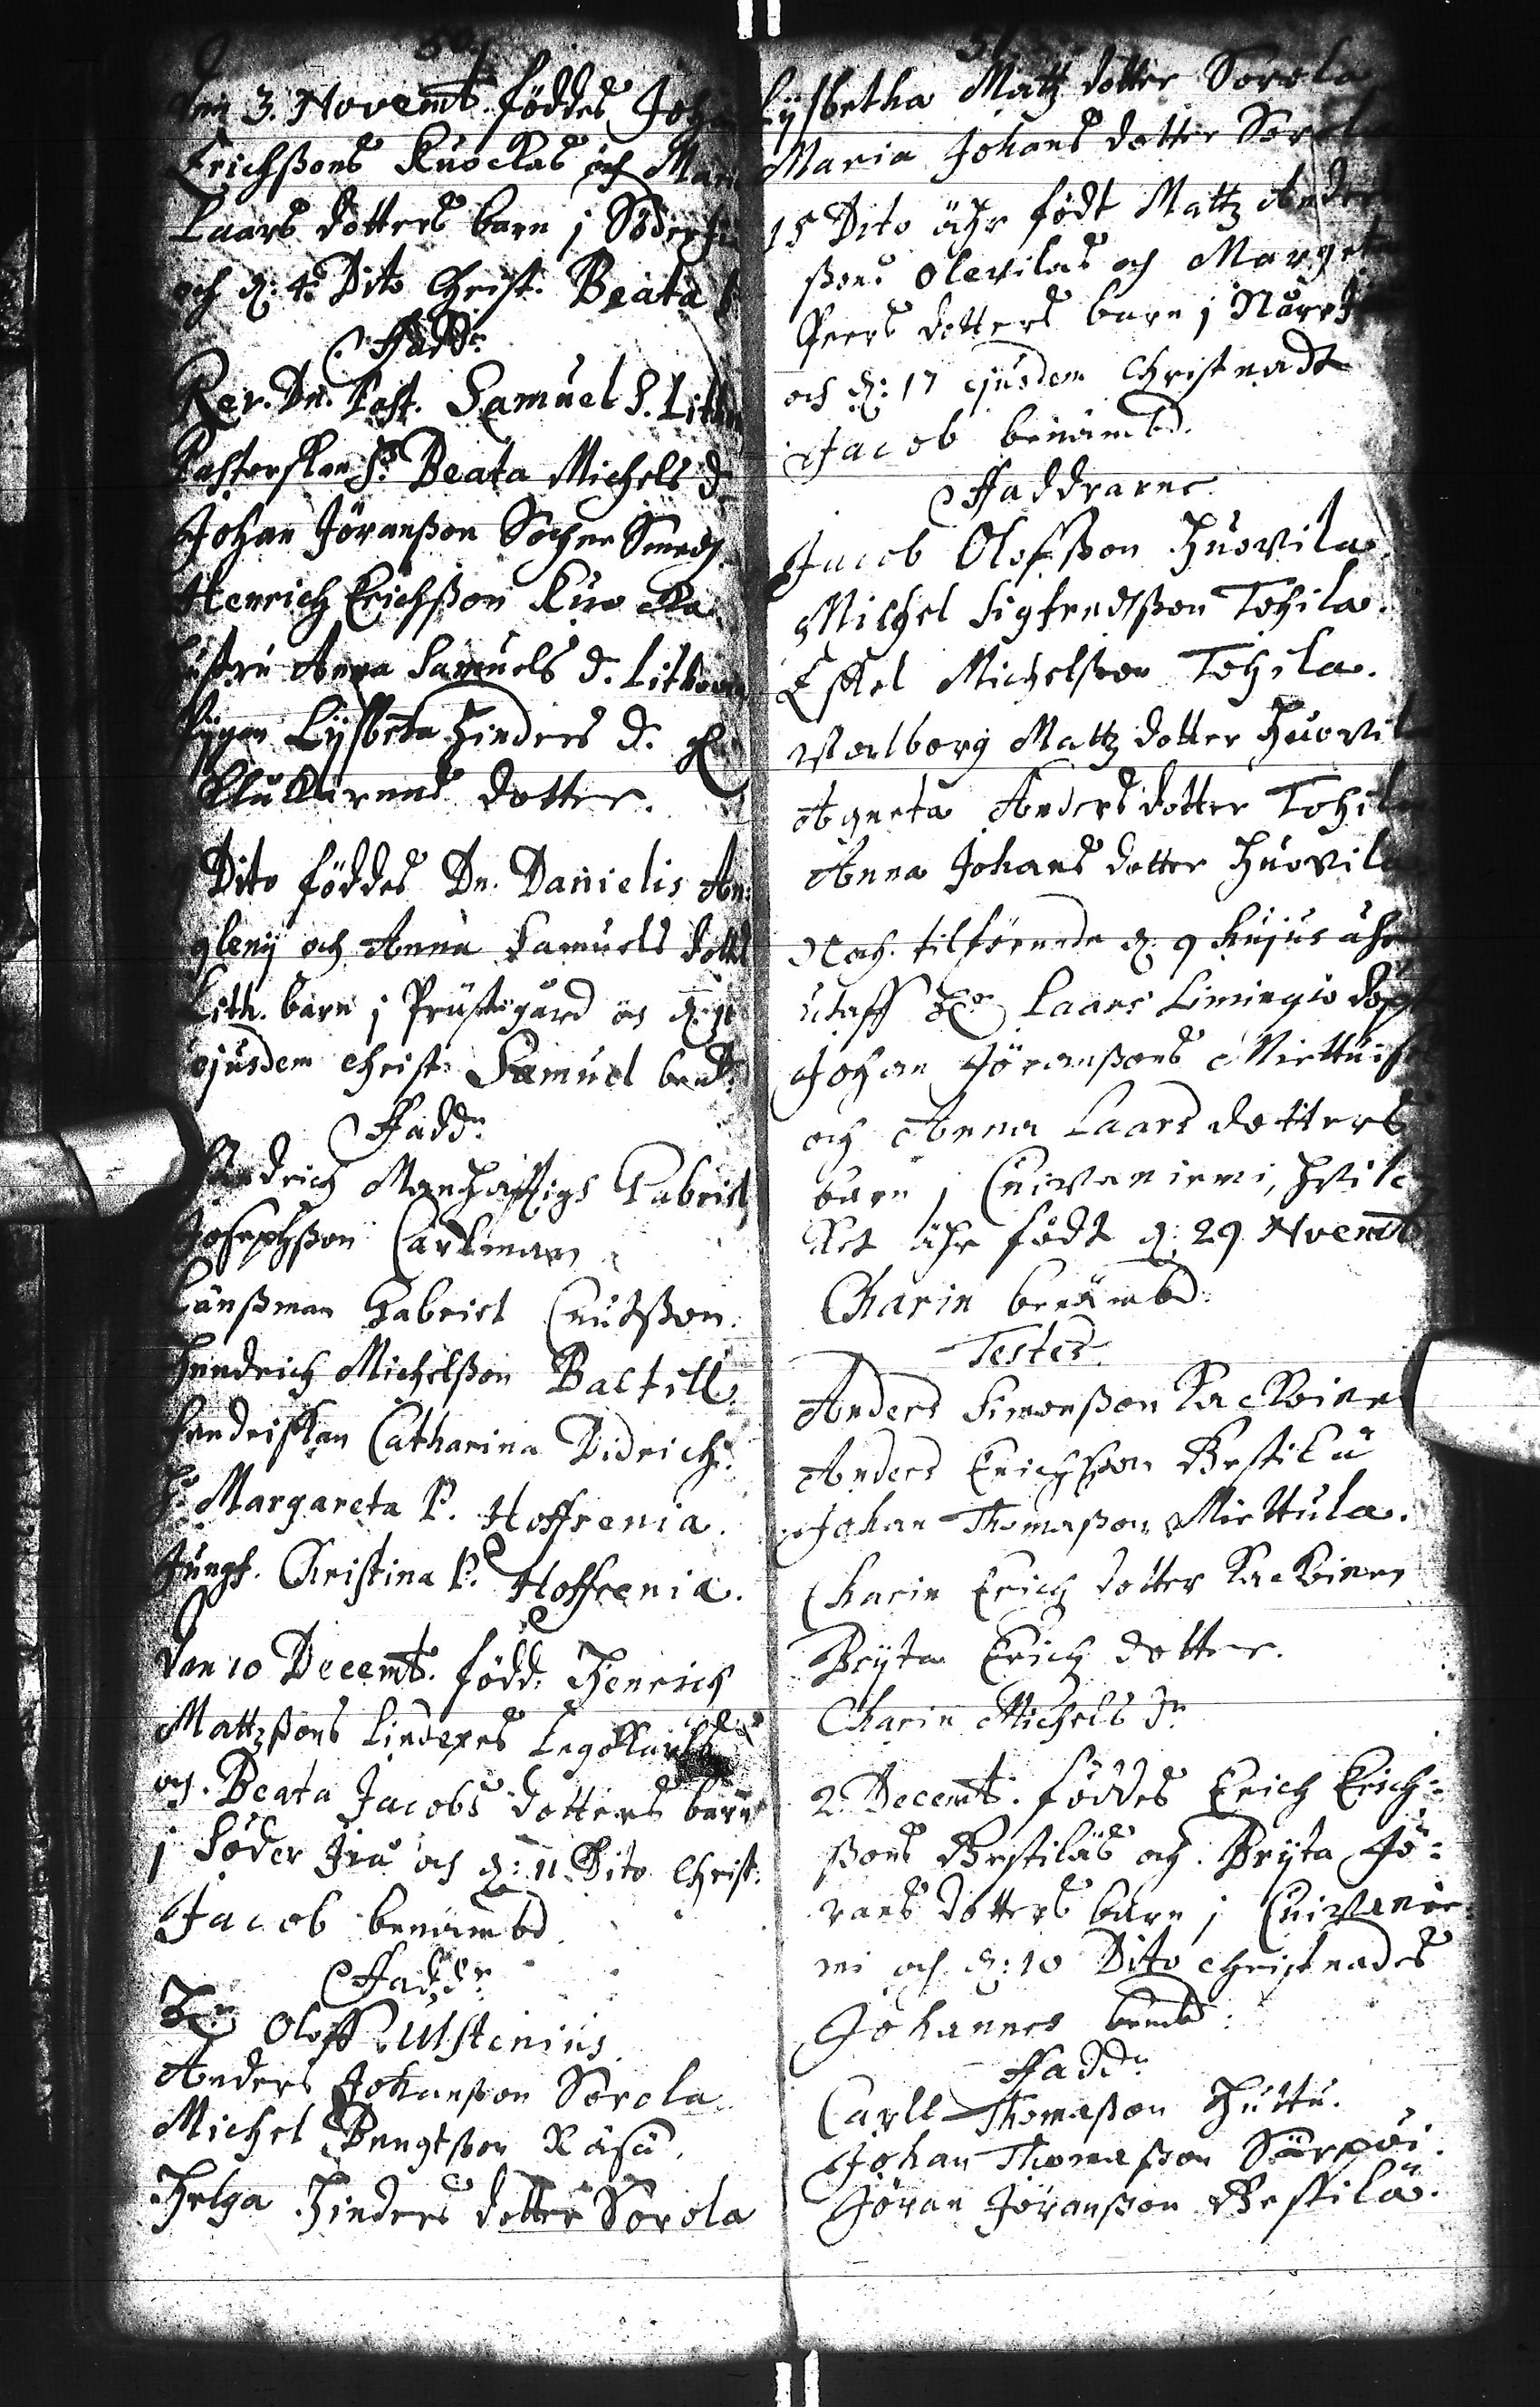 50
den 3. Novemb. föddes Johan
Erichßons Kuockas och Mar
Laars dotters barn j Söder Jiå
och d: 4. Dito Christ. Beata
Fadd:
Rev. Dn. Past. Samuel S. Lith
Pastorskan H. Beata Michels d.
Johan Jöranßon Sochne Smedh
Henrich Erichßon Kuocka
hustru Anna Samuels d. Lithov
Pigan Lysbeta Hinders d.
Kluckarens dotter.
Dito föddes Dn. Danielis An-
gleny och Anna Samuels dott
Lith. barn j Prästegård och d: 11
ejusdem Christ: Samuel ben:
Fadd:
Manhafftigh Gabriel
Josephßon Carlman
Länßman Gabriel Cnutßon.
Hendrich Michelßon Bactill.
Catharina Didrichs
H. Margareta P. Hoffrenia.
Jungf. Christina P. Hoffrenia.
Den 10 Decemb. född: Henrich
Mattzßons Lindexes
och Beata Jacobs dotters barn
j Söder Jiå och d: 11 Dito Christ:
Jacob benämbd
Fadd:
Hr Oloff Ulstenius
Anders Johanßon Sorola
Michel Bengtßon Räsä.
Helga Hinders dotter Sorola
51
Lysbetha Mattz dotter Sorola
Maria Johans dotter Sorol
15 Dito ähr födt Mattz Anders
ßons Olevilas och Margeta
Peers dotters barn j Norr J
och d: 17 ejusdem Christnadt
Jacob benämbd.
Faddrarne
Jacob Olofßon Huovila.
Michel Sigfredßon Tohila.
Eskel Michelßon Tohila.
Walborg Mattz dotter Huovil
Agneta Anders dotter Tohila
Anna Johans dotter Huovila
Och tilförende d: 9 hujus ähr
utaff Hr Laars Limingio döpt
Johan Jöranßons Miettuis
och Anna Laars dotters
barn j Cuivaniemi, hvil-
ket ähr födt d: 29 Nvemb
Charin benämbd:
Testes.
Anders Simonßon Kackoine
Anders Erichßon Bestilä
Johan Thomaßon Miettula.
Charin Erich dotter Kackoinen
Bryta Erich dotter.
Charin Michels dr
2 Decemb. föddes Erich Erich-
ßons Bestiläs och Bryta Jö-
rans dotters barn j Cuivanie-
mi och d: 10 Dito christnades
Johannes benmd:
Fadd:
Carll Thomaßon Huttu.
Johan Thomaßon Särpöi.
Jöran Jöranßon Bestilä.